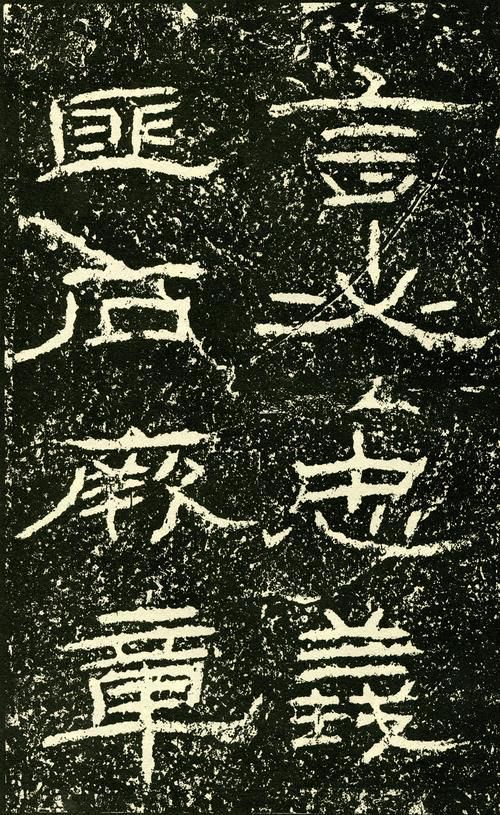 言必忠義
匪石厥章